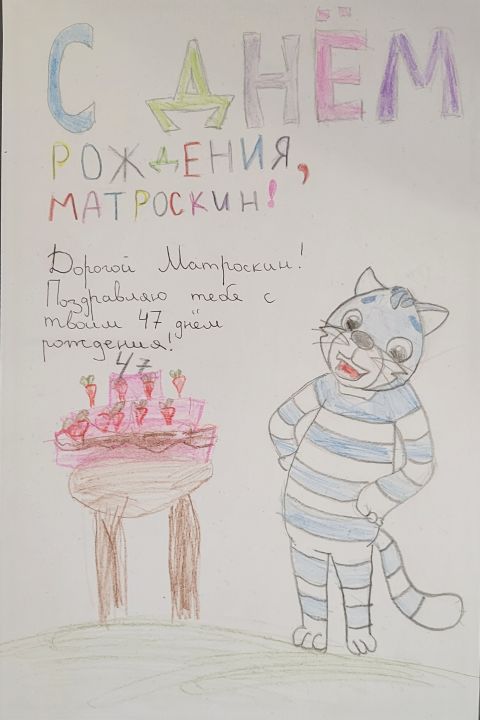 С ДНЁМ
РОЖДЕНИЯ,
МАТРОСКИН!
Дорогой Матроскин!
Поздравляю тебя с
твоим 47 днём
рождения!
47